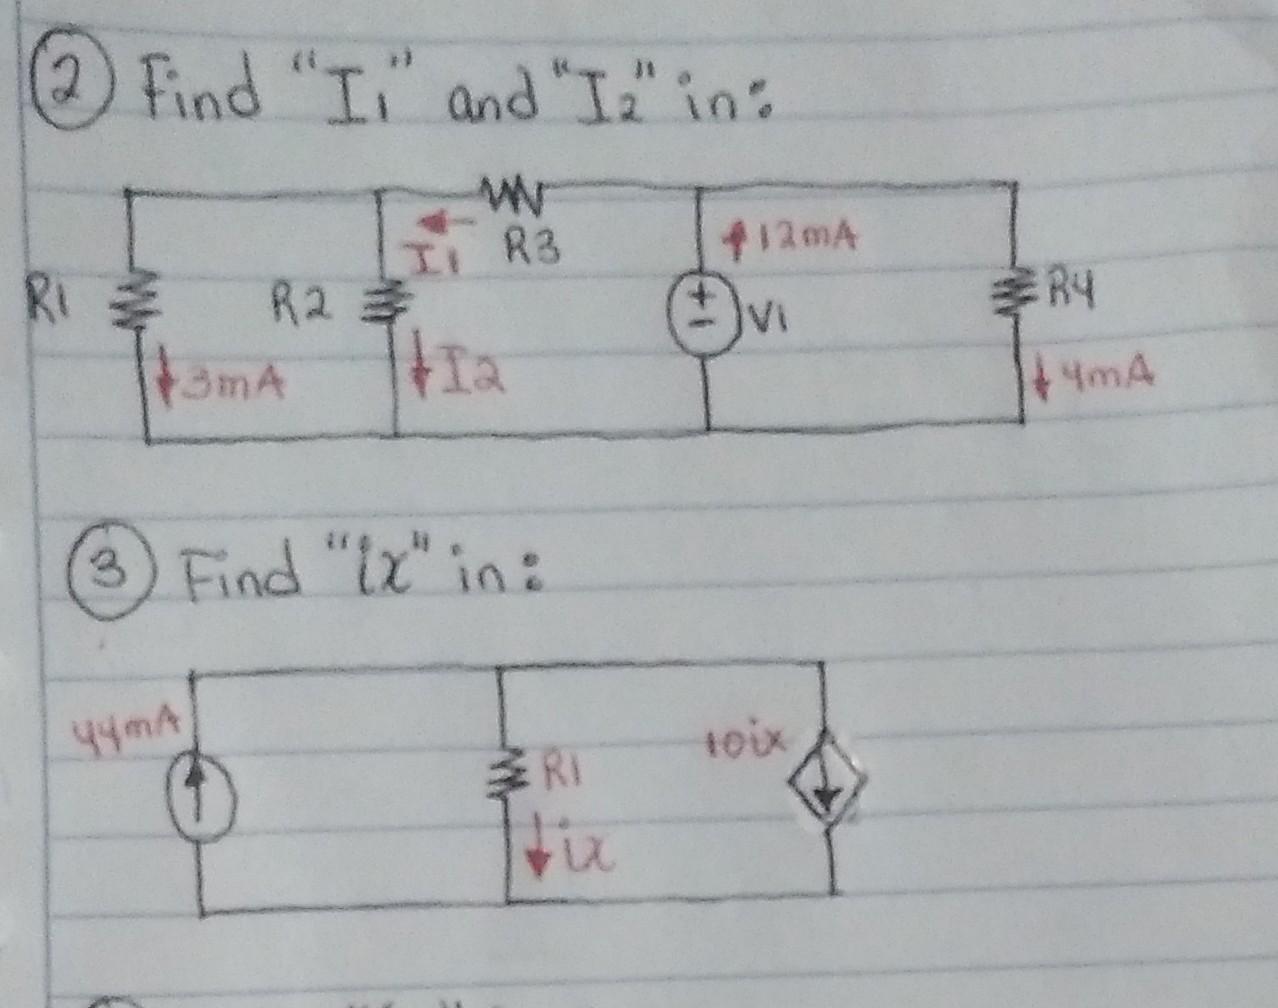 ② Find "I₁" and "I₂" in:
R3
I1
12mA
R1
R2
+
−
V1
R4
3mA
I2
4mA
③ Find "ix" in:
44mA
R1
10ix
ix